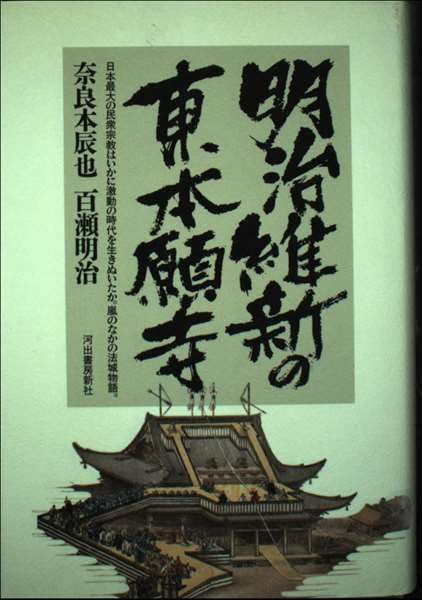 明治維新の
東本願寺
日本最大の民衆宗教はいかに激動の時代を生きぬいたか。嵐のなかの法城物語。
奈良本辰也 百瀬明治
河出書房新社